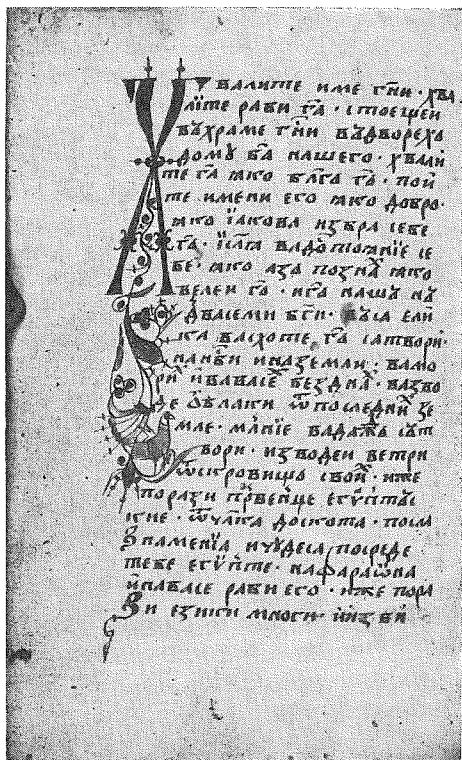 Хвалите име гн҃и · хва
лїте раби га҃ · стоещеи
въ храме гн҃и въ дворехъ
домꙋ ба҃ нашего · хвали
те га҃ ꙗко бл҃га га҃ · пои
те имени его ꙗко добро ·
ꙗко їакова избра себе
га҃ · їил҃ѧ въ достоꙗнїе се
бе · ꙗко аза познах ꙗко
велеи га҃ · и га҃ нашъ на
двасеми бг҃и · въса ели
ка въсхоте га҃ сатвори ·
на нб҃си и на земли · ва мо
ри и вавасех безднах · вазво
де ѡблаки ѿ последних зе
мле · млнїе ва дажда сат
вори · изводеи ветри
ѿ скровища своих · иже
порази првенце егѵптас
кие · ѿ чл҃ка до скота · посла
знаменїа и чꙋдеса посреде
тебе егѵпте · на фараѡна
и на васе раби его · иже пора
зи езики многи · и изби